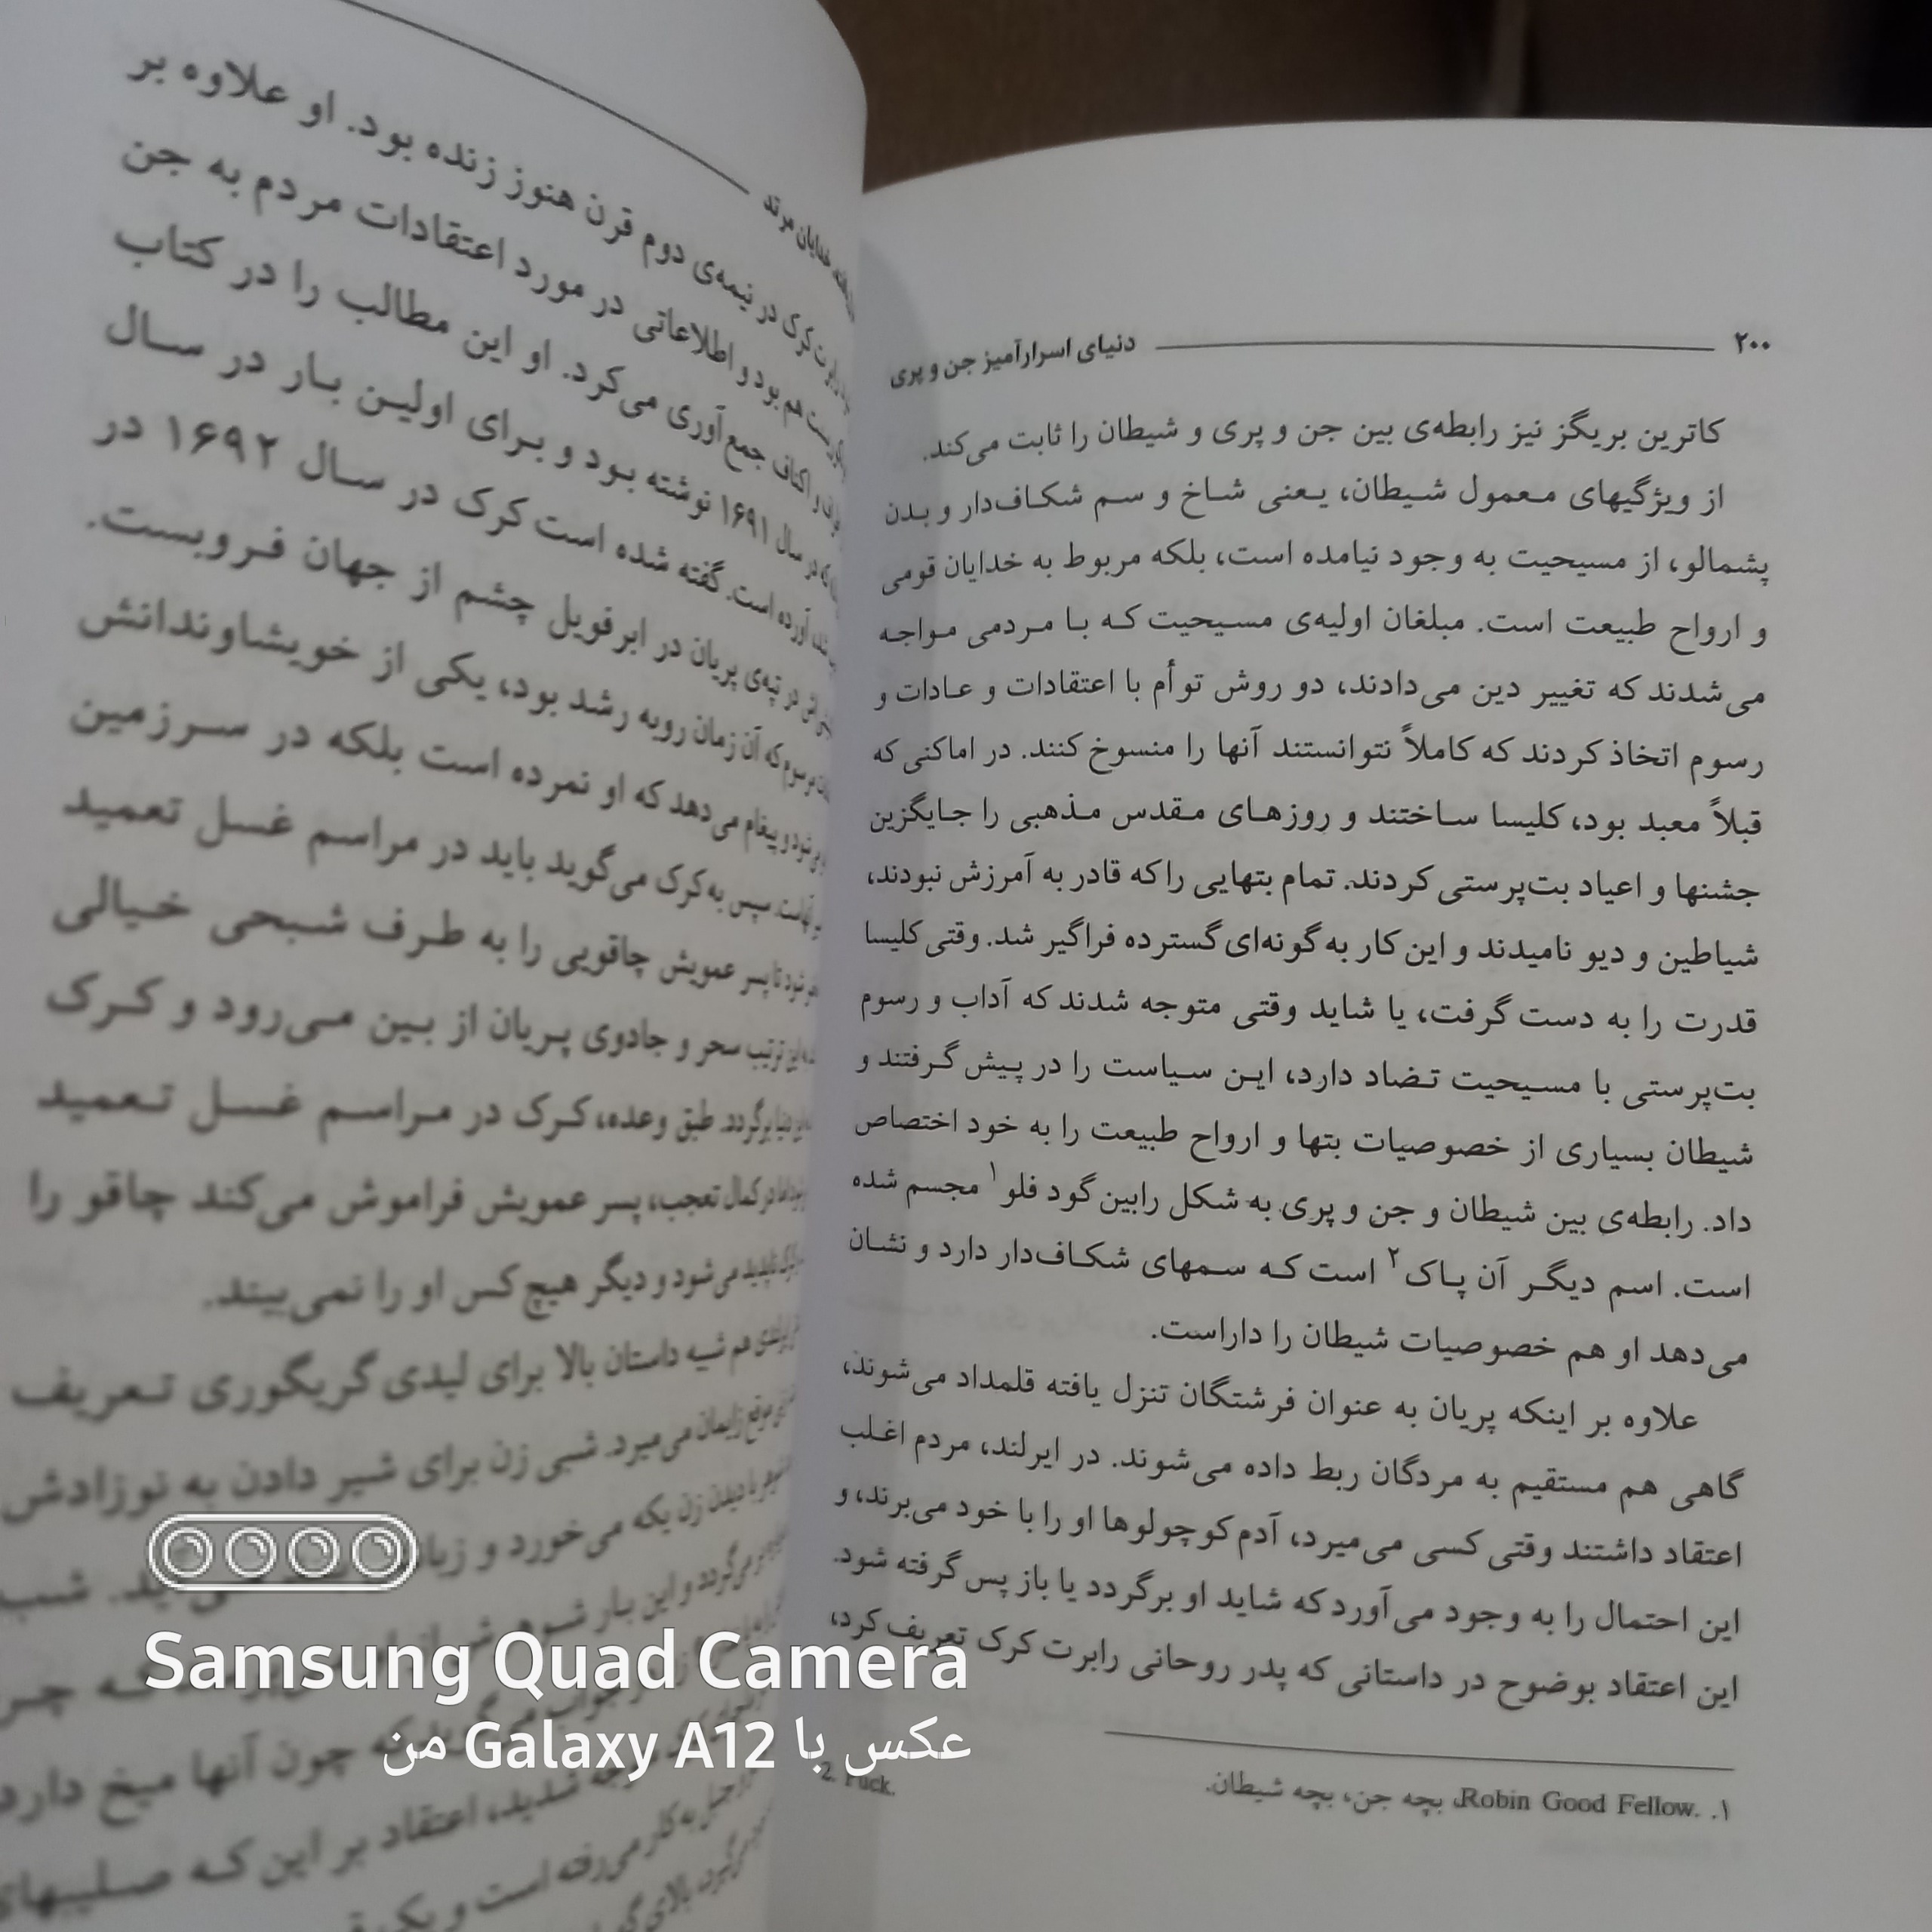 ۲۰۰ دنیای اسرارآمیز جن و پری
کاترین بریگز نیز رابطه‌ی بین جن و پری و شیطان را ثابت می‌کند.
از ویژگیهای معمول شیطان، یعنی شاخ و سم شکاف‌دار و بدن
پشمالو، از مسیحیت به وجود نیامده است، بلکه مربوط به خدایان قومی
و ارواح طبیعت است. مبلغان اولیه‌ی مسیحیت که با مردمی مواجه
می‌شدند که تغییر دین می‌دادند، دو روش توأم با اعتقادات و عادات و
رسوم اتخاذ کردند که کاملاً نتوانستند آنها را منسوخ کنند. در اماکنی که
قبلاً معبد بود، کلیسا ساختند و روزهای مقدس مذهبی را جایگزین
جشنها و اعیاد بت‌پرستی کردند. تمام بتهایی را که قادر به آمرزش نبودند،
شیاطین و دیو نامیدند و این کار به گونه‌ای گسترده فراگیر شد. وقتی کلیسا
قدرت را به دست گرفت، یا شاید وقتی متوجه شدند که آداب و رسوم
بت‌پرستی با مسیحیت تضاد دارد، این سیاست را در پیش گرفتند و
شیطان بسیاری از خصوصیات بتها و ارواح طبیعت را به خود اختصاص
داد. رابطه‌ی بین شیطان و جن و پری به شکل رابین گود فلو۱ مجسم شده
است. اسم دیگر آن پاک۲ است که سمهای شکاف‌دار دارد و نشان
می‌دهد او هم خصوصیات شیطان را داراست.
علاوه بر اینکه پریان به عنوان فرشتگان تنزل یافته قلمداد می‌شوند،
گاهی هم مستقیم به مردگان ربط داده می‌شوند. در ایرلند، مردم اغلب
اعتقاد داشتند وقتی کسی می‌میرد، آدم کوچولوها او را با خود می‌برند، و
این احتمال را به وجود می‌آورد که شاید او برگردد یا باز پس گرفته شود.
این اعتقاد بوضوح در داستانی که پدر روحانی رابرت کرک تعریف کرد،
۱. Robin Good Fellow. بچه جن، بچه شیطان.
2. Puck.
خدایان مرتد
کرک در نیمه‌ی دوم قرن هنوز زنده بود. او علاوه بر
هم بود و اطلاعاتی در مورد اعتقادات مردم به جن
و اکناف جمع‌آوری می‌کرد. او این مطالب را در کتاب
در سال ۱۶۹۱ نوشته بود و برای اولین بار در سال
آورده است. گفته شده است کرک در سال ۱۶۹۲ در
در تپه‌ی پریان در ابرفویل چشم از جهان فروبست.
مرسوم که آن زمان روبه رشد بود، یکی از خویشاوندانش
و پیغام می‌دهد که او نمرده است بلکه در سرزمین
سپس به کرک می‌گوید باید در مراسم غسل تعمید
شود تا پسر عمویش چاقویی را به طرف شبحی خیالی
این ترتیب سحر و جادوی پریان از بین می‌رود و کرک
دنیا برگردد. طبق وعده، کرک در مراسم غسل تعمید
در کمال تعجب، پسر عمویش فراموش می‌کند چاقو را
ناپدید می‌شود و دیگر هیچ کس او را نمی‌بیند.
هم شبیه داستان بالا برای لیدی گریگوری تعریف
موقع زایمان می‌میرد. شبی زن برای شیر دادن به نوزادش
با دیدن زن یکه می‌خورد و شب
برمی‌گردد و این بار شوهرش
که چون آنها میخ دارد
شدید، اعتقاد بر این که صلیبهای
به کار می‌رفته است و یک
بالای
Samsung Quad Camera
عکس با Galaxy A12 من